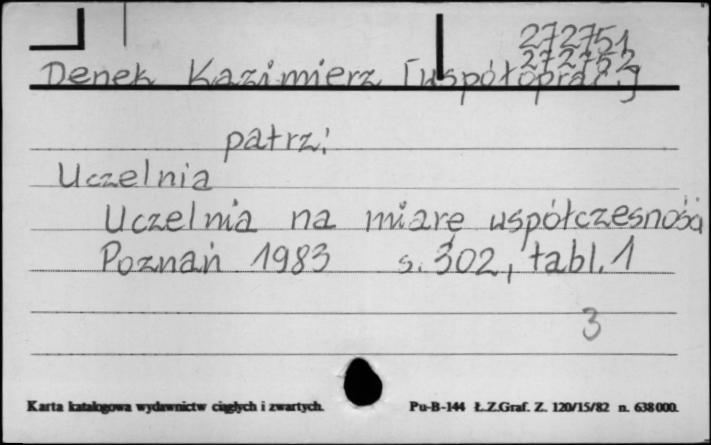 272751
272752
Denek Kazimierz [współoprac.]
patrz:
Uczelnia
Uczelnia na miarę współczesności
Poznań 1983 s. 302, tabl. 1
3
Karta katalogowa wydawnictw ciągłych i zwartych.
Pu-B-144 Ł.Z.Graf. Z. 120/15/82 n. 638000.